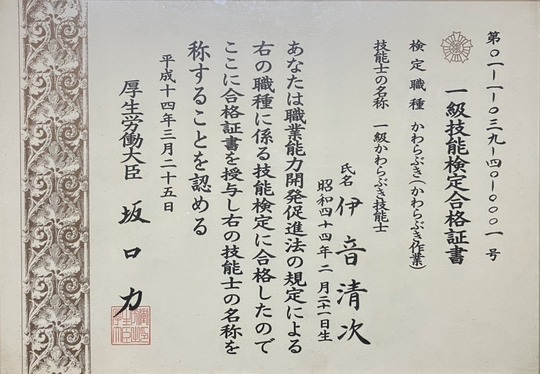 第〇一-一-〇三九-四〇-〇〇〇一号
一級技能検定合格証書
検定職種 かわらぶき(かわらぶき作業)
技能士の名称 一級かわらぶき技能士
氏名 伊音清次
昭和四十四年二月二一日生
あなたは職業能力開発促進法の規定による
右の職種に係る技能検定に合格したので
ここに合格証書を授与し右の技能士の名称を
称することを認める
平成十四年三月二十五日
厚生労働大臣 坂口力